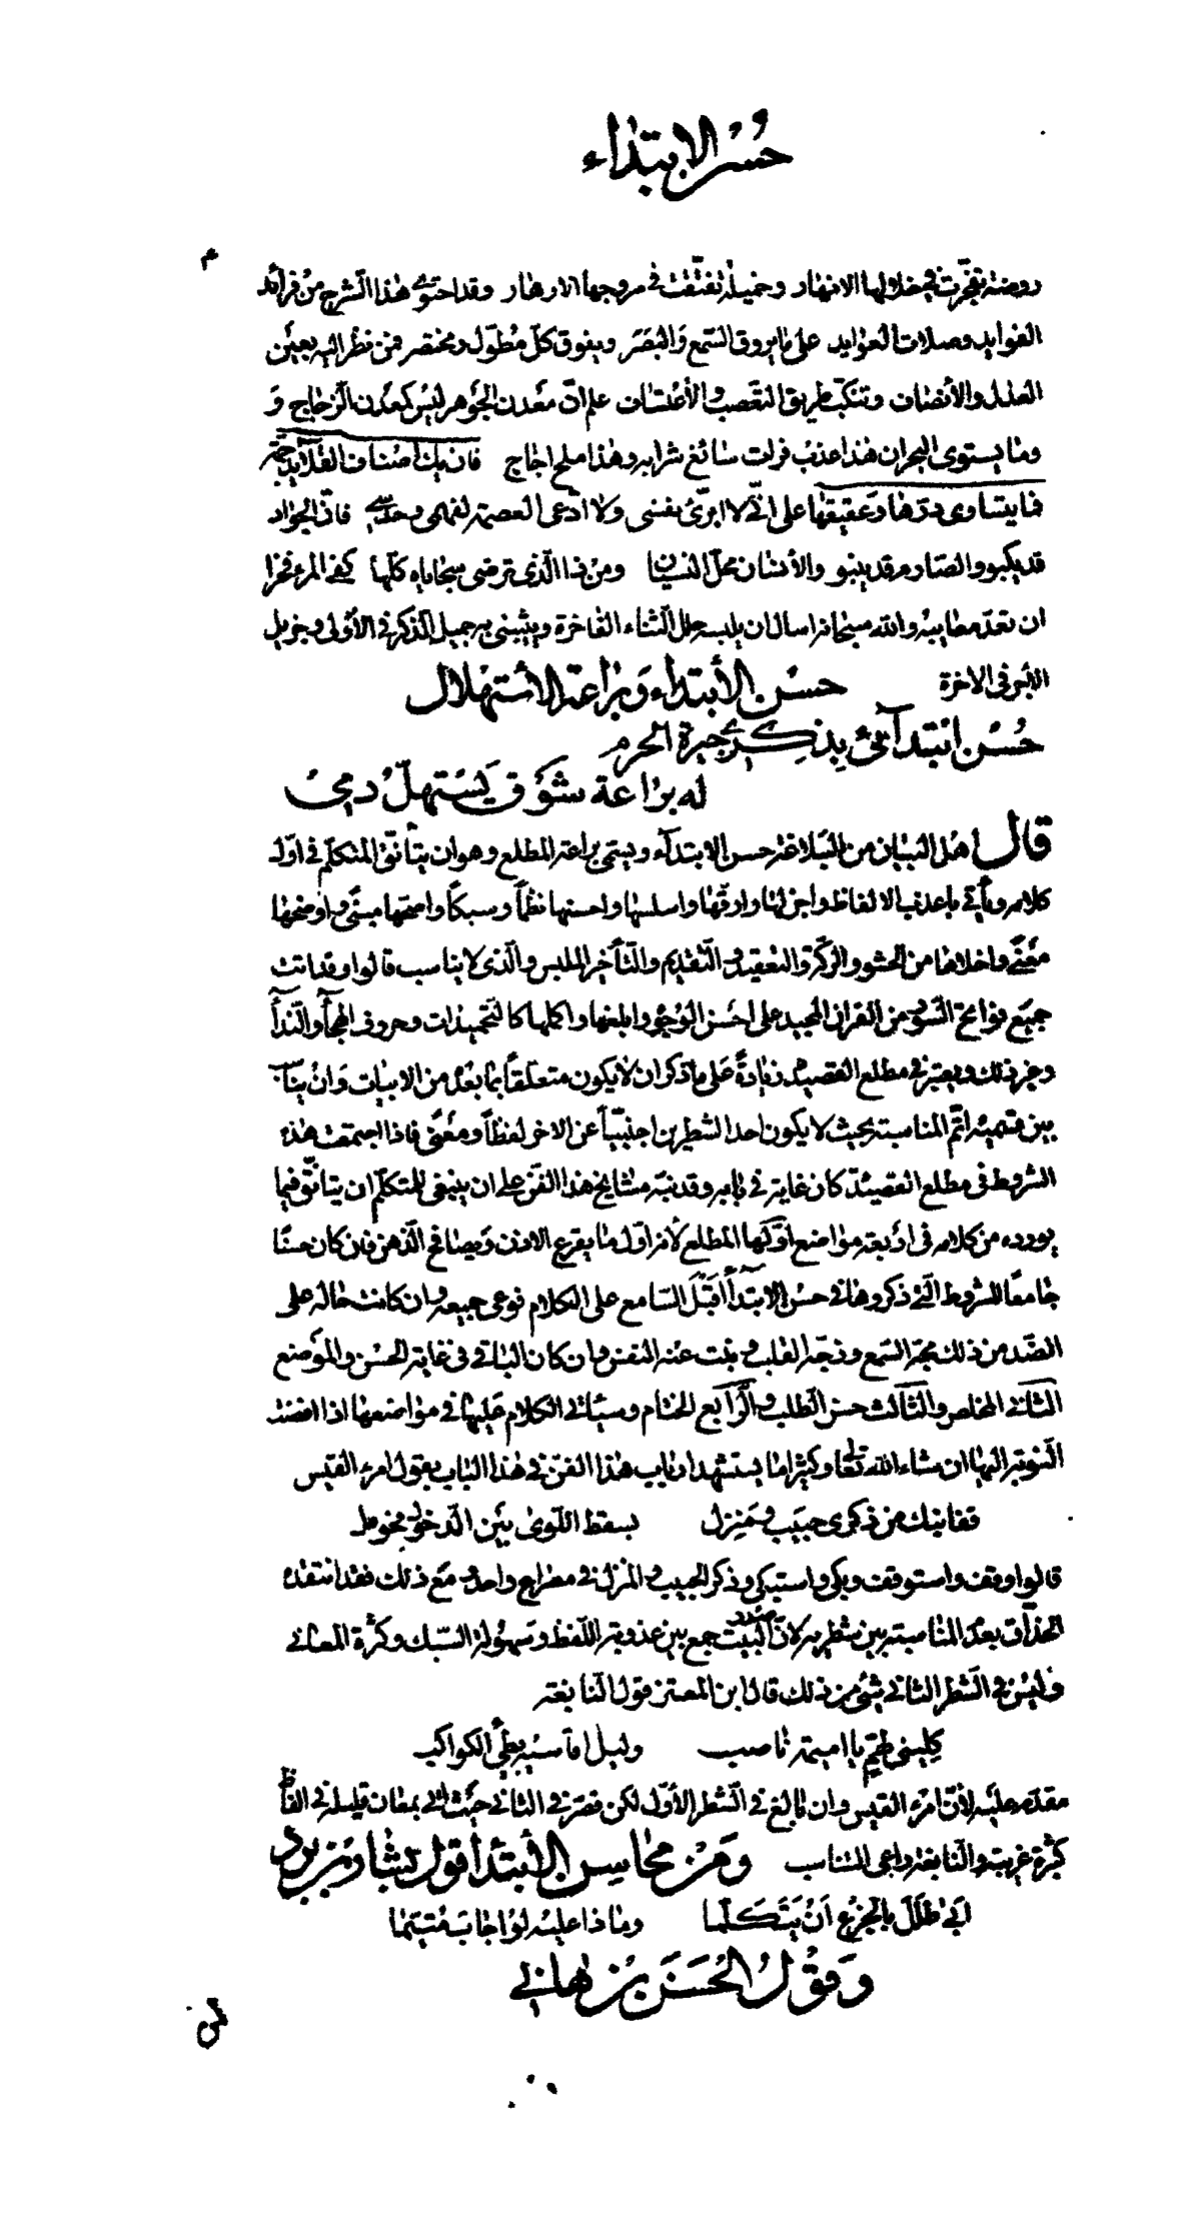 حُسْن الابتداء
م
روضة تفجّرت في خلالها الانهار وخميلة تفتّقت في مروجها الازهار وقد احتوى هذا الشرح من فرائد
الفوايد وصلات العوايد على ما يروق السّمع وَالبَصَر ويفوق كلّ مُطوّل ومختصر فمن نظر اليه بعين
العدل والأنصاف وتنكّب طريق التعَصب والأعْتساف علم انّ معْدن الجوْهر ليْس كمعْدن الزجاج وَ
وما يستوى البحران هذا عذب فرات سائغ شرابه وهذا ملح اجاج فان يك اصناف القلايد جمّة
فما يتساوى درّها وَعقيقها على انّى لا ابرّئ نفسى ولا ادّعى العصمة لفهمى وحدسى فانّ الجواد
قد يكبو والصّارم قد ينبو والأنسان محلّ النسيان ومن ذا الّذى ترضى سجاياه كلّها كفى المرء فخرا
ان تعدّ معايبه والله سبحانه اسال ان يلبسه حلل الثناء الفاخرة ويثيبنى به جميل الذكر فى الأولى وجزيل
الاجر فى الاخرة حسْن الأبتداء وَبراعة الاستهلال
حُسْن ابْتدآئى بِذِكرى جيرة الحرم
له براعة شَوْق يَسْتهلّ دمى
قال اهل البيان من البلاغة حسن الابتدآء ويسمّى براعة المطلع وهو ان يتأنّق المتكلّم فى اوّل
كلامه ويأتى باعذب الالفاظ واجزلها وارقّها واسلسها واحسنها نظماً وسبكاً واصحّها مبنًى واوضحها
معنًى واخلاها من الحشو والركّة والتعقيد والتّقديم والتّأخير الملبس والّذى لا يناسب قالوا وقد اتت
جميع فواتح السّور من القران المجيد على احسن الوجوه وابلغها واكملها كالتحميدات وحروف الهجآء والنّدآء
وغير ذلك ويعتبر فى مطلع القصيدة زيادةً عَلى ما ذكر ان لا يكون متعلّقاً بما بعْده من الابيات وَان يناسب
بين قسميه اتمّ المناسبة بحيث لا يكون احد الشطرين اجنبيّاً عن الاخر لفظاً ومعْنًى فاذا اجتمعت هذه
الشروط فى مطلع القصيدة كان غاية فى بابه وقد نبّه مشايخ هذا الفنّ على ان ينبغى للمتكلّم ان يتأنّق فيما
يورده من كلامه فى اربعة مواضع اوّلها المطلع لأنه اوّل ما يقرع الاذن وَيصافح الذّهن فان كان حسناً
جامعاً للشروط الّتى ذكروها فى حسْن الابتدآء اقبَل السّامع على الكلام فوعى جميعه وان كانت حاله على
الضّد من ذلك مجّه السّمع وزجّه القلب ونبت عنه النفس وان كان الباقى فى غاية الحسن والموضع
الثّانى المخلص والثّالث حسن الطلب والرّابع الختام وسيأتى الكلام عليها فى مواضعها اذا افضت
النّوبة اليها ان شاء الله تعالى وكثيراً ما يستشهد ارباب هذا الفنّ فى هذا الباب بقول امرء القيس
قفا نبك من ذكرى حبيب ومنزل بسقط اللّوى بين الدّخول فحومل
قالوا وقف واستوقف وبكى واستبكى وذكر الحبيب والمنزل فى مصراع واحد ومع ذلك فقد انتقده
الحذّاق بعدم المناسبة بين شطريه لانّ صدر البيت جمع بين عذوبة اللّفظ وسهُولة السّبك وكثرة المعانى
وليس فى الشطر الثانى شئ من ذلك قال ابن المعتز قول النابغة
كِلينى لهمّ يا اميمة ناصب وليل اقاسيه بطئ الكواكب
مقدّم عليه لأنّ امرء القيس وان بالغ فى الشطر الأوّل لكن قصّر فى الثانى حيث اتى بمعان قليلة فى الفاظ
كثيرة غريبة والنابغة راعى التناسب وَمنْ محاسن الأبتدا قول بشار بن برد
ابى طلل بالجزع اَن يَتَكَلّما وماذا عليه لوْ اجابَ مُتيّما
وَقوْلُ الحُسَن بْن هانى